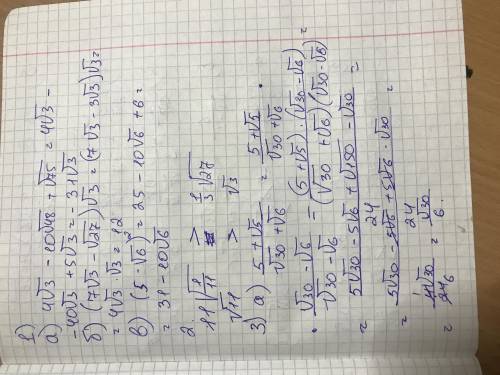 1)
а) 4√3 - 10√48 + √75 = 4√3 -
- 40√3 + 5√3 = - 31√3
б) (7√3 - √27)√3 = (7√3 - 3√3)√3 =
= 4√3·√3 = 12
в) (5 - √6)² = 25 - 10√6 + 6 =
= 31 - 10√6
2.
11√(1/11) > 1/3 √27
√11 > √3
3) а) (5+√5)/(√30+√6) = (5+√5)/(√30+√6) ·
· (√30-√6)/(√30-√6) = ((5+√5)·(√30-√6))/((√30+√6)(√30-√6)) =
= (5√30 - 5√6 + √150 - √30)/24 =
= (5√30 - 5√6 + 5√6 - √30)/24 =
= 4√30/24 6 = √30/6.